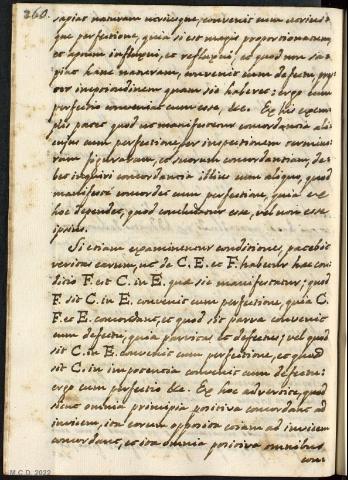 260.
sapiat naturam utriusque, convenit cum utrius-
que perfectione, quia si est magis proportionatum,
et aptum influxui, et refluxui; et quod non sa-
piat hanc naturam, convenit cum defectu, pro-
ptr impendimem quam sic haberet: ergo cum
perfectio conveniat cum esse, &c. Ex his exem-
plis patet quod ut manifestetur concordantia ali-
cujus cum perfectione per inspectionem termino-
rum figurarum, et suorum concordantiam, de-
bet inquiri concordantia illius cum aliquo, quod
manifeste concordet cum perfectione, quia ex
hoc dependet, quod concludatur esse, vel non esse
ipsius.
Si etiam examinentur conditiones, patebit
veritas earum, ut de C. E. et F. habentur hae con-
ditio F. et C. in E. quae sic manifestatur; quod
F. sit C. in E. convenit cum perfectione, quia C.
F. et E. concordant, et quod sit parva convenit
cum defectu, quia parvitas et defectus; vel quod
sit C. in E. convenit cum perfectione, et quod
sit C. in impotentia convenit cum defectu:
ergo cum perfectio &c. Ex hoc adverte, quod
sicut omnia principia positiva concordant ad
invicem, ita eorum opposita etiam ad invicem
concordant, et ita omnia positiva omnibus
con-
M.C.D. 2022